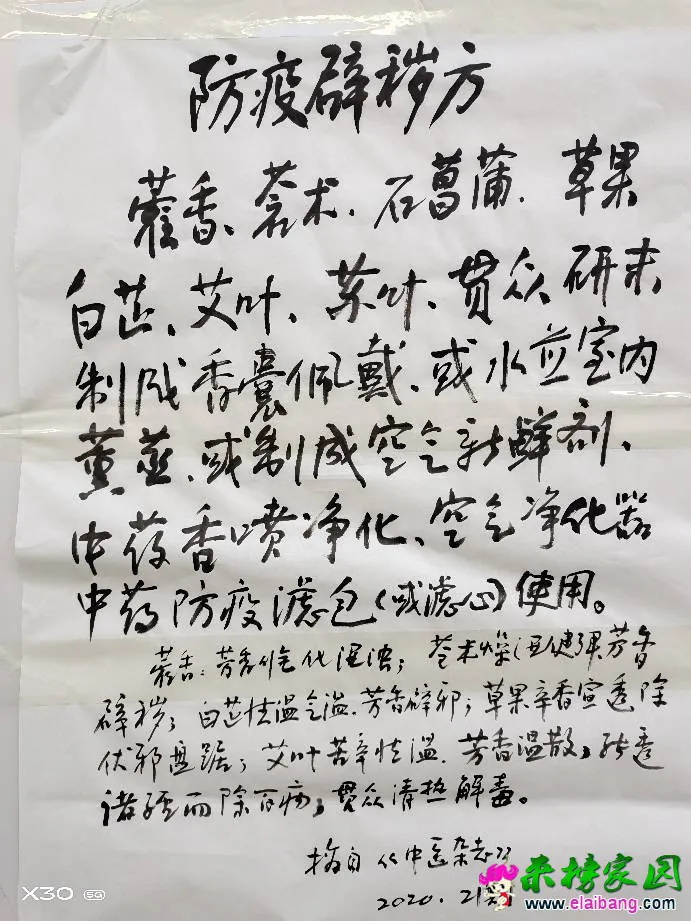 防疫辟秽方
藿香、苍术、石菖蒲、草果
白芷、艾叶、苏叶、贯众研末
制成香囊佩戴、或水煎室内
薰蒸、或制成空气新鲜剂、
中药香喷净化、空气净化器
中药防疫滤包(或滤心)使用。
藿香：芳香化湿浊；苍术燥湿健脾芳香
辟秽；白芷性温气温、芳香辟邪；草果辛香宣透除
伏邪盘踞；艾叶苦辛性温、芳香温散、能透
诸经而除百病；贯众清热解毒。
摘自《中医杂志》
2020.21
X30 5G
来榜家园
www.elaibang.com